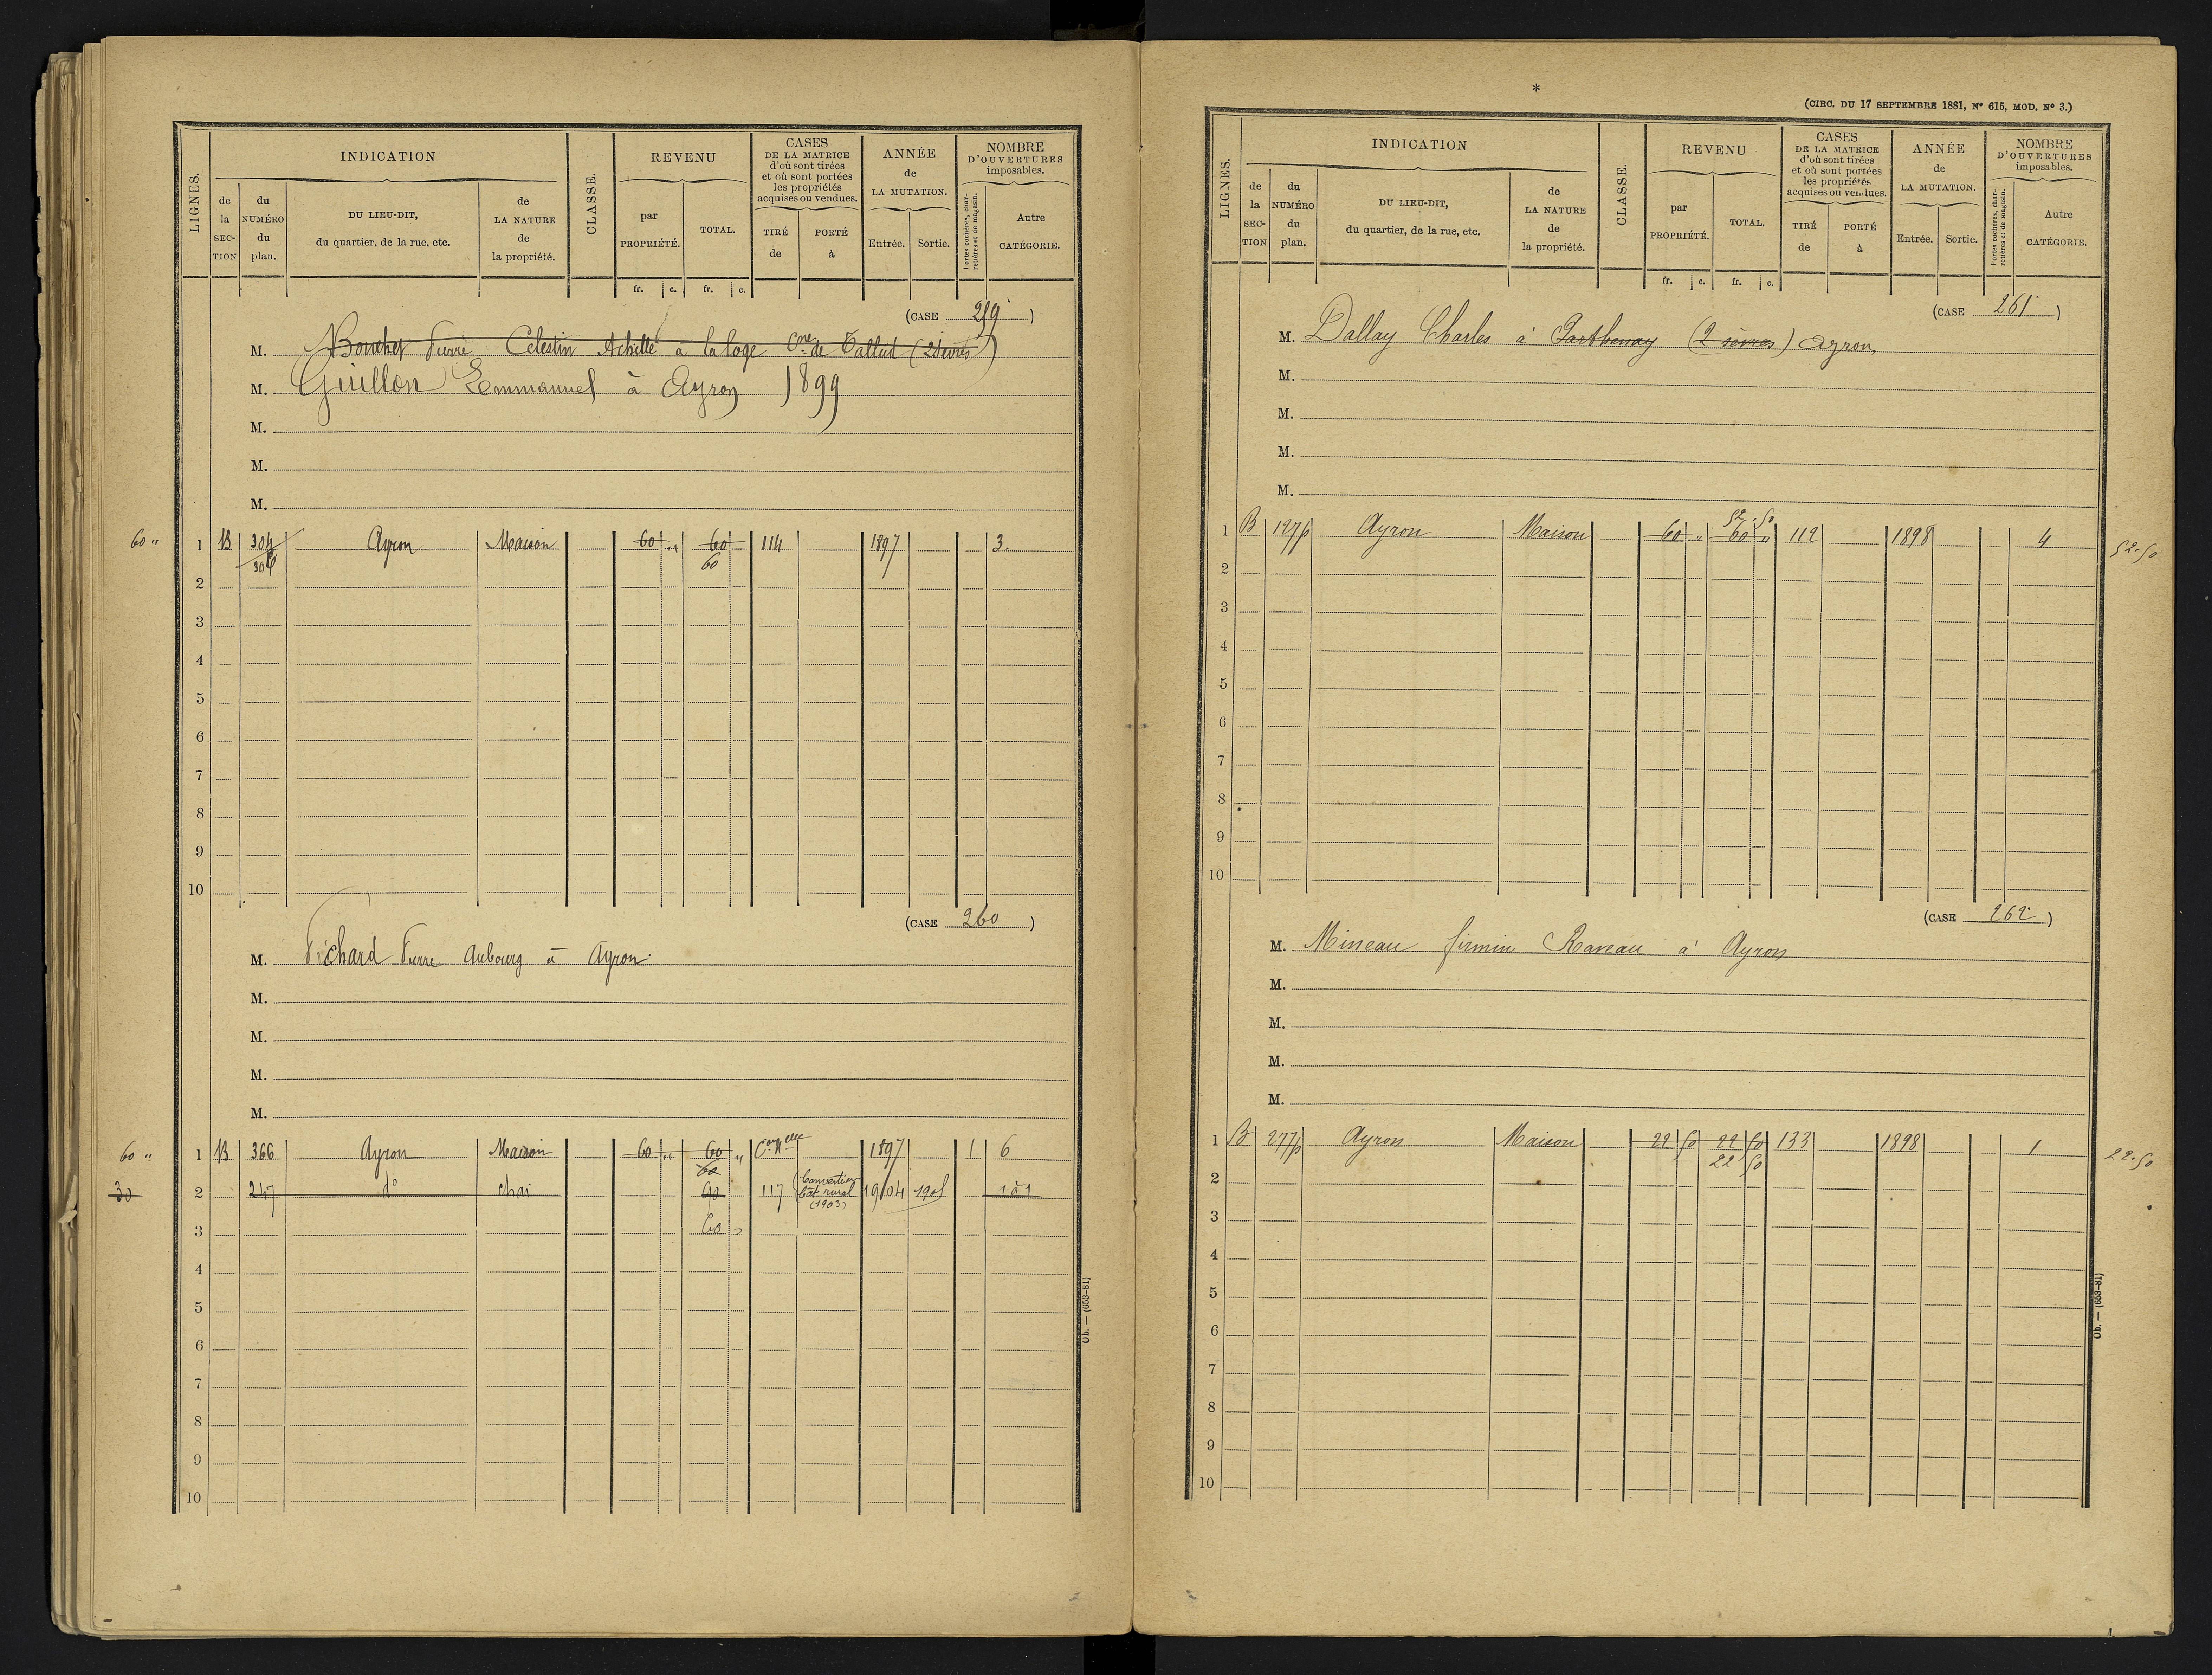 LIGNES.
INDICATION
de la SEC-TION
du NUMÉRO du plan.
DU LIEU-DIT, du quartier, de la rue, etc.
de LA NATURE de la propriété.
CLASSE.
REVENU
par PROPRIÉTÉ.
TOTAL.
CASES DE LA MATRICE d'où sont tirées et où sont portées les propriétés acquises ou vendues.
TIRÉ de
PORTÉ à
ANNÉE de LA MUTATION.
Entrée.
Sortie.
NOMBRE D'OUVERTURES imposables.
Portes cochères, charretières et de magasin.
Autre CATÉGORIE.
fr. c. fr. c.
(CASE 259)
M. Bouchet Pierre Célestin Achille à la loge Cne de Tallud (2 Sèvres)
M. Guillon Emmanuel à Ayron 1899
M.
M.
M.
60 " 1 B 304 Ayron Maison 60 " 60 114 1897 3.
306 60
2
3
4
5
6
7
8
9
10
(CASE 260)
M. Pichard Pierre Aubourg à Ayron.
M.
M.
M.
M.
60 " 1 B 366 Ayron Maison 60 " 60 " Con Nelle 1897 1 6
60
30 2 247 do chai 90 117 Converti en bât rural (1903) 1904 1905 1 à 1
3 60 "
4
5
6
7
8
9
10
Ob. — (653-81)
*
(CIRC. DU 17 SEPTEMBRE 1881, No 615, MOD. No 3.)
LIGNES.
INDICATION
de la SEC-TION
du NUMÉRO du plan.
DU LIEU-DIT, du quartier, de la rue, etc.
de LA NATURE de la propriété.
CLASSE.
REVENU
par PROPRIÉTÉ.
TOTAL.
CASES DE LA MATRICE d'où sont tirées et où sont portées les propriétés acquises ou vendues.
TIRÉ de
PORTÉ à
ANNÉE de LA MUTATION.
Entrée.
Sortie.
NOMBRE D'OUVERTURES imposables.
Portes cochères, charretières et de magasin.
Autre CATÉGORIE.
fr. c. fr. c.
(CASE 261)
M. Dallay Charles à Parthenay (2 sèvres) Ayron
M.
M.
M.
M.
52.50
1 B 127p Ayron Maison 60 " 60 " 112 1898 4 52.50
2
3
4
5
6
7
8
9
10
(CASE 262)
M. Mineau firmin Raveau à Ayron
M.
M.
M.
M.
1 B 277p Ayron Maison 22 50 22 50 133 1898 1 22.50
22 50
2
3
4
5
6
7
8
9
10
Ob. — (653-81)